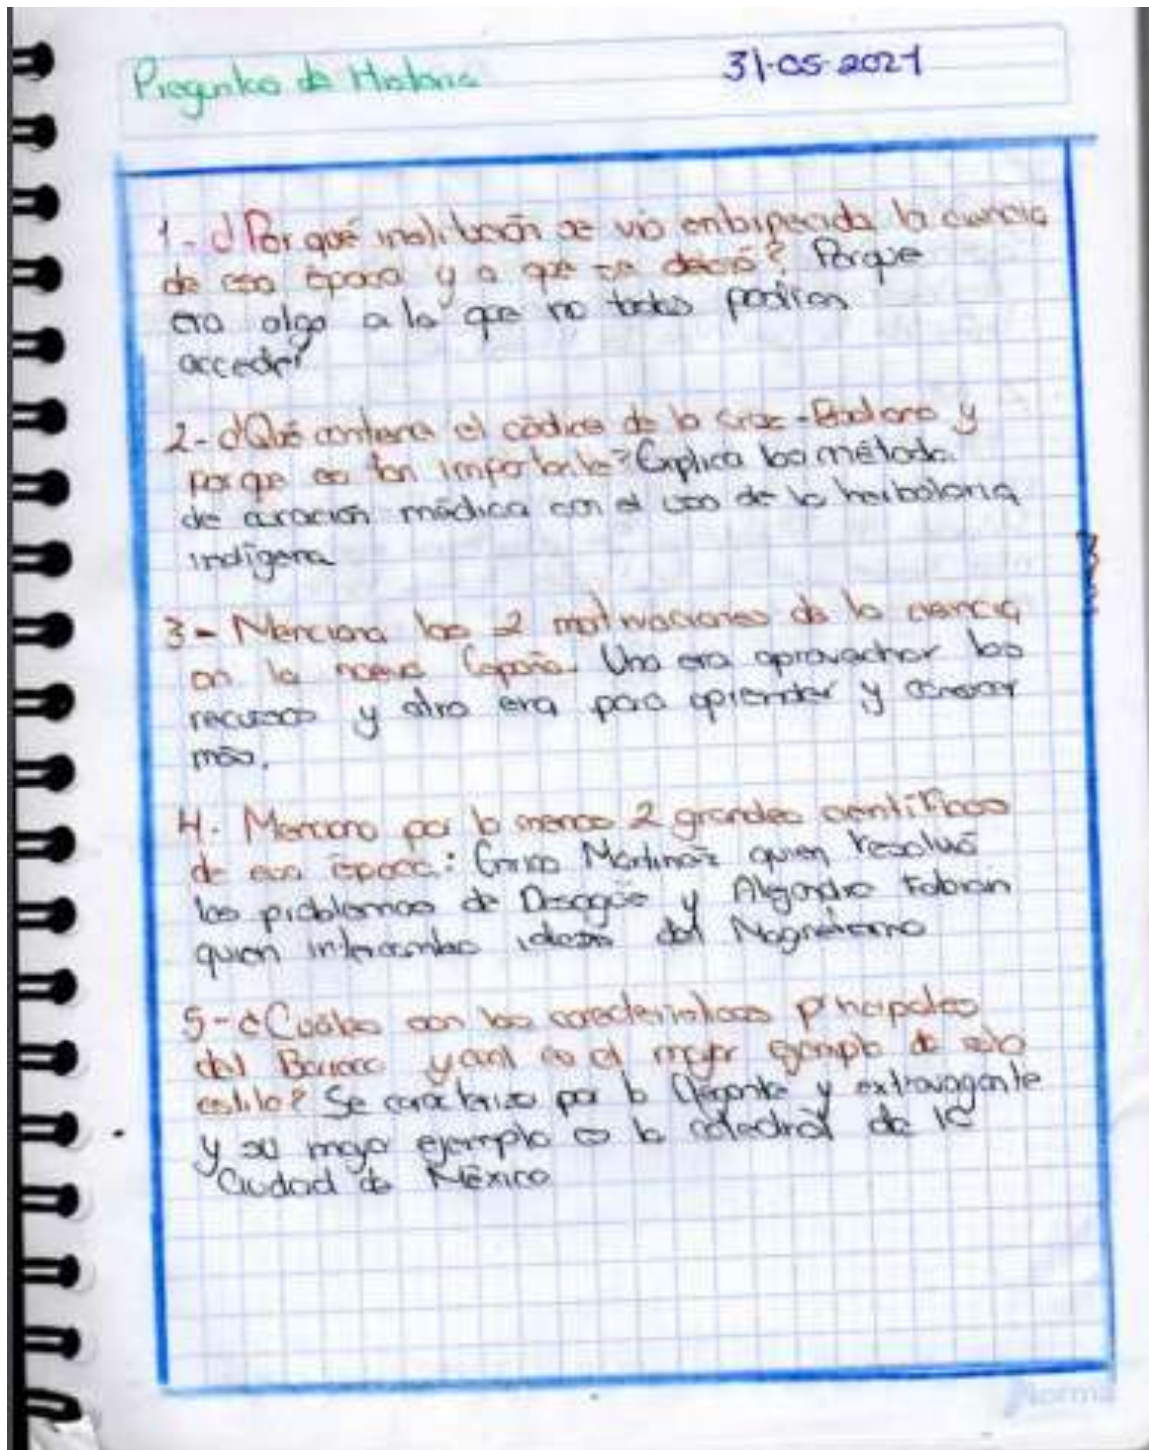 Preguntas de Historia 31-05-2021
1- ¿Por qué institución se vio entorpecida la ciencia
de esa época y a que se debió? Porque
era algo a la que no todos podian
acceder
2- ¿Qué contiene el códice de la Cruz-Badiano y
porque es tan importante? Explica los método
de curación médica con el uso de la herbolaria
indígena
3- Menciona las 2 motivaciones de la ciencia
en la nueva España. Una era aprovechar los
recursos y otra era para aprender y conocer
más.
4- Menciona por lo menos 2 grandes científicos
de esa época: Enrico Martínez quien resolvió
los problemas de Desagüe y Alejandro Fabián
quien intercambio ideas del Magnetismo
5- ¿Cuáles son las características principales
del Barroco y cual es el mejor ejemplo de este
estilo? Se caracterizo por lo elegante y extravagante
y su mayo ejemplo es la catedral de la
Ciudad de México
Norma